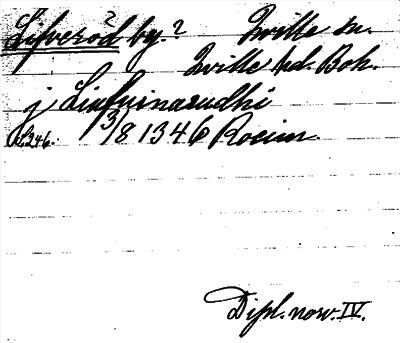 Lifverød by.? Tville sn.
Tville hd. Boh.
j Liafuinarudhi
S. 246. 13/8 1346 Roeim
Dipl. norv. IV.